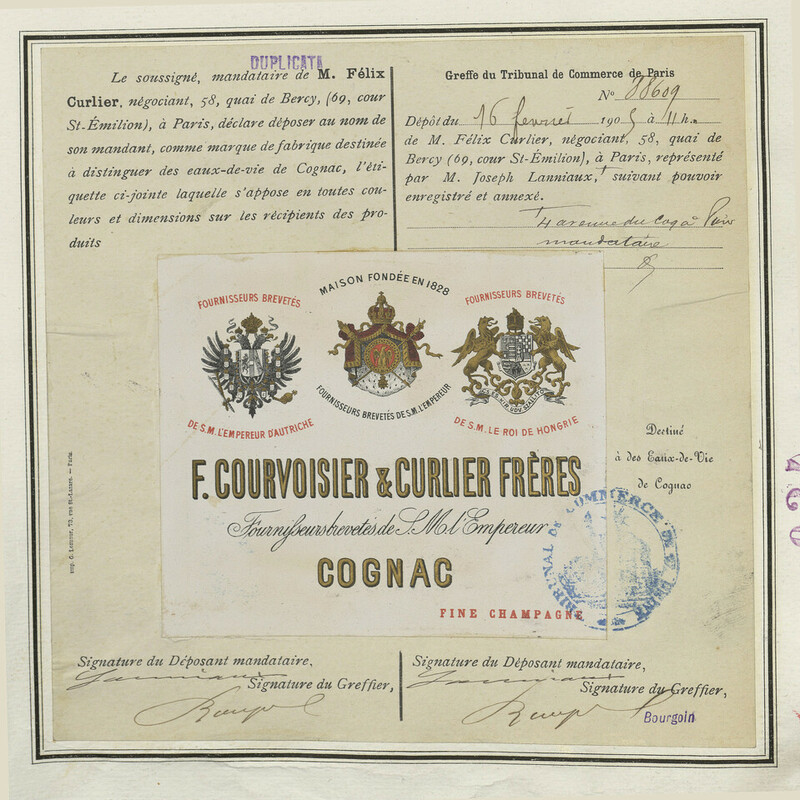 DUPLICATA
Le soussigné, mandataire de M. Félix
Curlier, négociant, 58, quai de Bercy, (69, cour
St-Émilion), à Paris, déclare déposer au nom de
son mandant, comme marque de fabrique destinée
à distinguer des eaux-de-vie de Cognac, l'éti-
quette ci-jointe laquelle s'appose en toutes cou-
leurs et dimensions sur les récipients des pro-
duits
Greffe du Tribunal de Commerce de Paris
No 88609
Dépôt du 16 fevrier 1905 à 11 h.
de M. Félix Curlier, négociant, 58, quai de
Bercy (69, cour St-Émilion), à Paris, représenté
par M. Joseph Lanniaux, suivant pouvoir
enregistré et annexé.
4 avenue du Coq à Paris
mandataire
MAISON FONDÉE EN 1828
FOURNISSEURS BREVETÉS
FOURNISSEURS BREVETÉS
DE S.M. L'EMPEREUR D'AUTRICHE
FOURNISSEURS BREVETÉS DE S.M. L'EMPEREUR
DE S.M. LE ROI DE HONGRIE
F. COURVOISIER & CURLIER FRÈRES
Fournisseurs brevetés de S. M. l'Empereur
COGNAC
FINE CHAMPAGNE
Destiné
à des Eaux-de-Vie
de Cognac
TRIBUNAL DE COMMERCE DE
Signature du Déposant mandataire,
Signature du Greffier,
Signature du Déposant mandataire,
Signature du Greffier,
Bourgoin